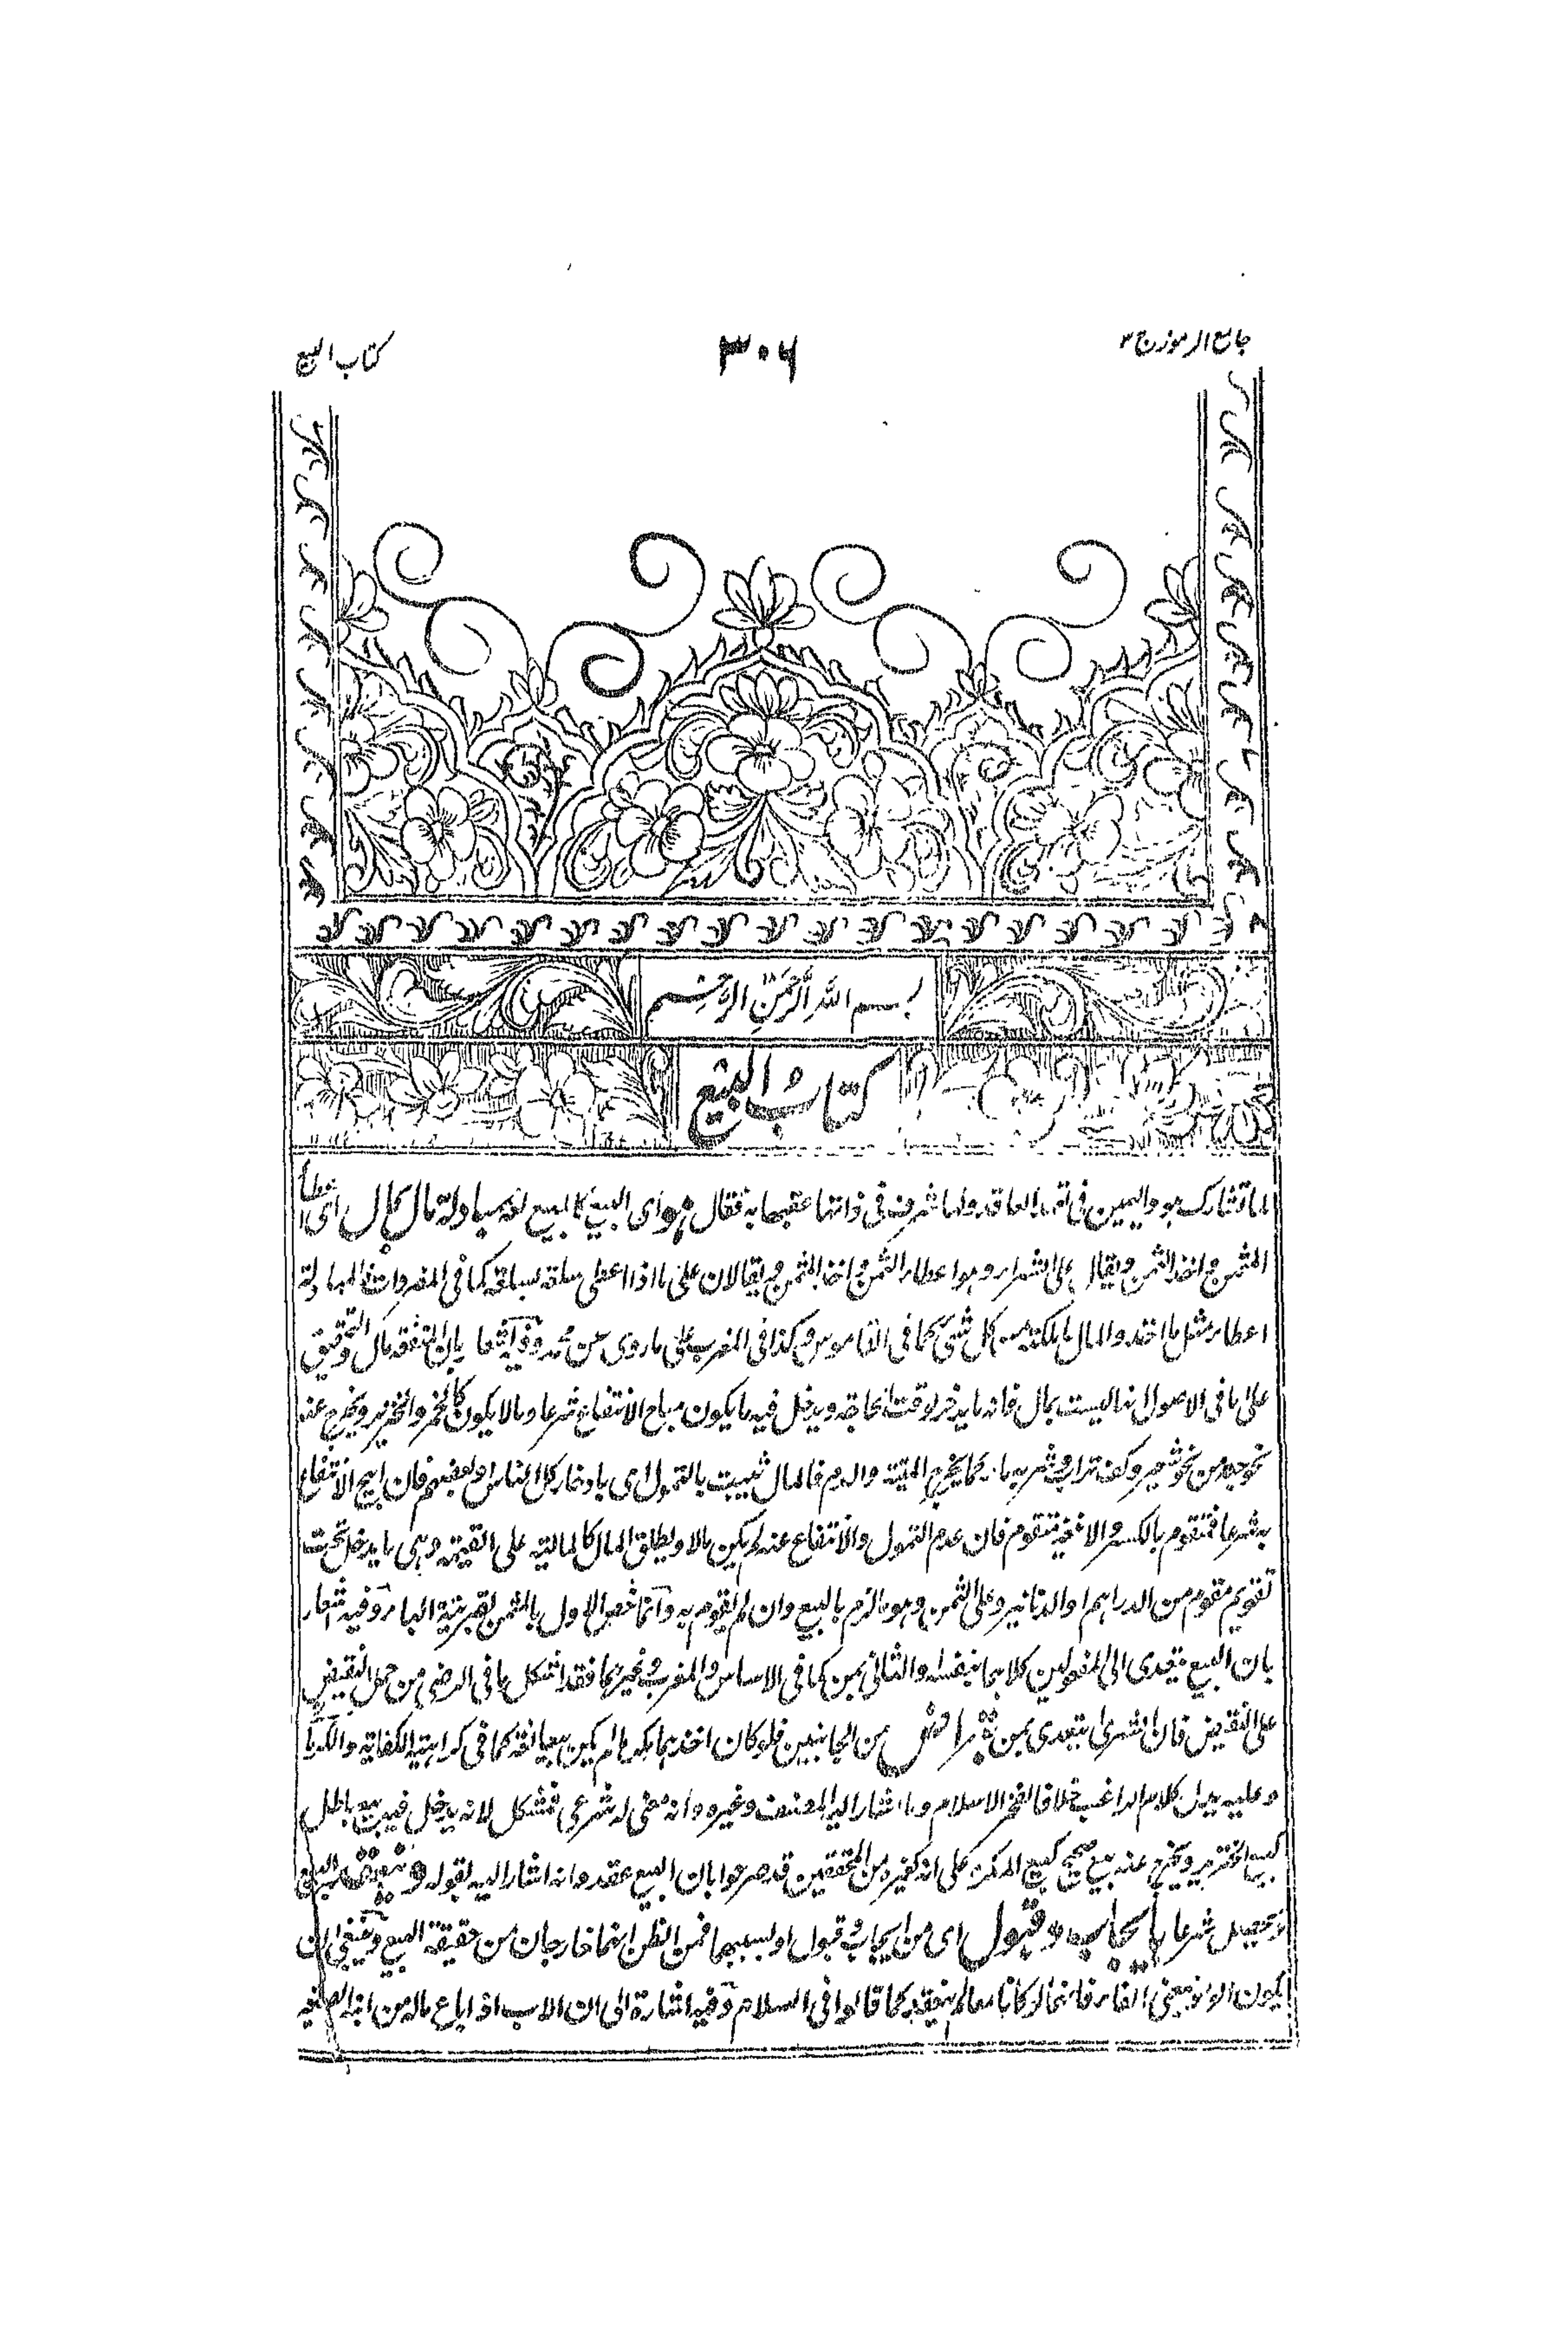 جامع الرموز ج ٣
٣٠٦
كتاب البيع
بسم الله الرحمن الرحيم
كتاب البيع
لما تشارك هو واليمين في العاقد ولها شرف في ذاتها عقبها به فقال هو اى البيع كالمبيع لغة مبادلة مال بمال اى اعطاء
المثمن واخذ الثمن ويقال على الشراء وهو اعطاء الثمن واخذ المثمن ويقالان على ما اذا اعطى سلعة بسلعة كما في المفردات فالمبادلة
اعطاء مثل ما اخذ والمال ما ملكته من كل شئ كما في القاموس وكذا في المغرب على ما روى عن محمد وفيه اشعار بان المنفعة مال والتحقيق
على ما في الاصول انها ليست بمال فانه ما يدخر لوقت الحاجة ويدخل فيه ما يكون مباح الانتفاع شرعا وما لا يكون كالخمر والخنزير ويخرج عنه
نحو حبة من نحو شعير وكف تراب وشربة ماء كما يخرج الميتة والدم فالمال ثبت بالتمول اى بادخار كل الناس او بعضهم فان ابيح الانتفاع
به شرعا فمتقوم بالكسر والا فغير متقوم فان عدم التمول والانتفاع عنه لم يكن مالا ويطلق المال كالمالية على القيمة وهى ما يدخل تحت
تقويم مقوم من الدراهم او الدنانير وعلى الثمن وهو ما لزم بالبيع وان لم يقوم به وانما خص الاول بالمثمن بقرينة الباء وفيه اشعار
بان البيع يتعدى الى المفعولين كلاهما بنفسه او الثانى بمن كما في الاساس والمغرب وغيرهما فقد اشكل ما في الرضى من حمل النقيض
على النقيض فان الشرى يتعدى بمن بتراض من الجانبين فلو كان اخذهما بكره لم يكن بيعا لغة كما في كراهية الكفاية والكرمانى
وعليه يدل كلام الراغب خلافا لفخر الاسلام وما اشار اليه المصنف وغيره وانه معنى له شرعى فمشكل لانه يدخل فيه بيع باطل
كبيع الخنزير ويخرج عنه بيع صحيح كبيع المكره على انه كغيره من المحققين قد صرحوا بان البيع عقد وانه اشار اليه بقوله وينعقد البيع
يحصل شرعا بايجاب وقبول اى من ايجاب وقبول او بسببهما فمن الظن انهما خارجان من حقيقة البيع وينبغى ان
يكون الواو بمعنى الفاء فانهما لو كانا معا لم ينعقد كما قالوا في السلام وفيه اشارة الى ان الاب اذا باع ماله من ابنه الصغير